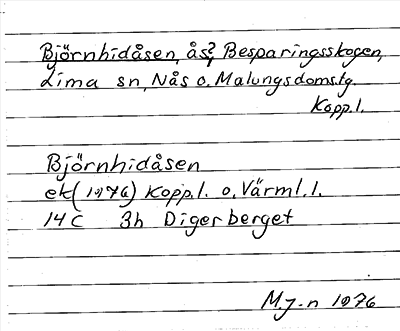 Björnhidåsen, ås?, Besparingsskogen,
Lima sn, Nås o. Malungs doms.tg.
Kopp. l.
Björnhidåsen
ek (1976) Kopp. l. o. Värml. l.
14 C 3h Digerberget
M.J-n 1976